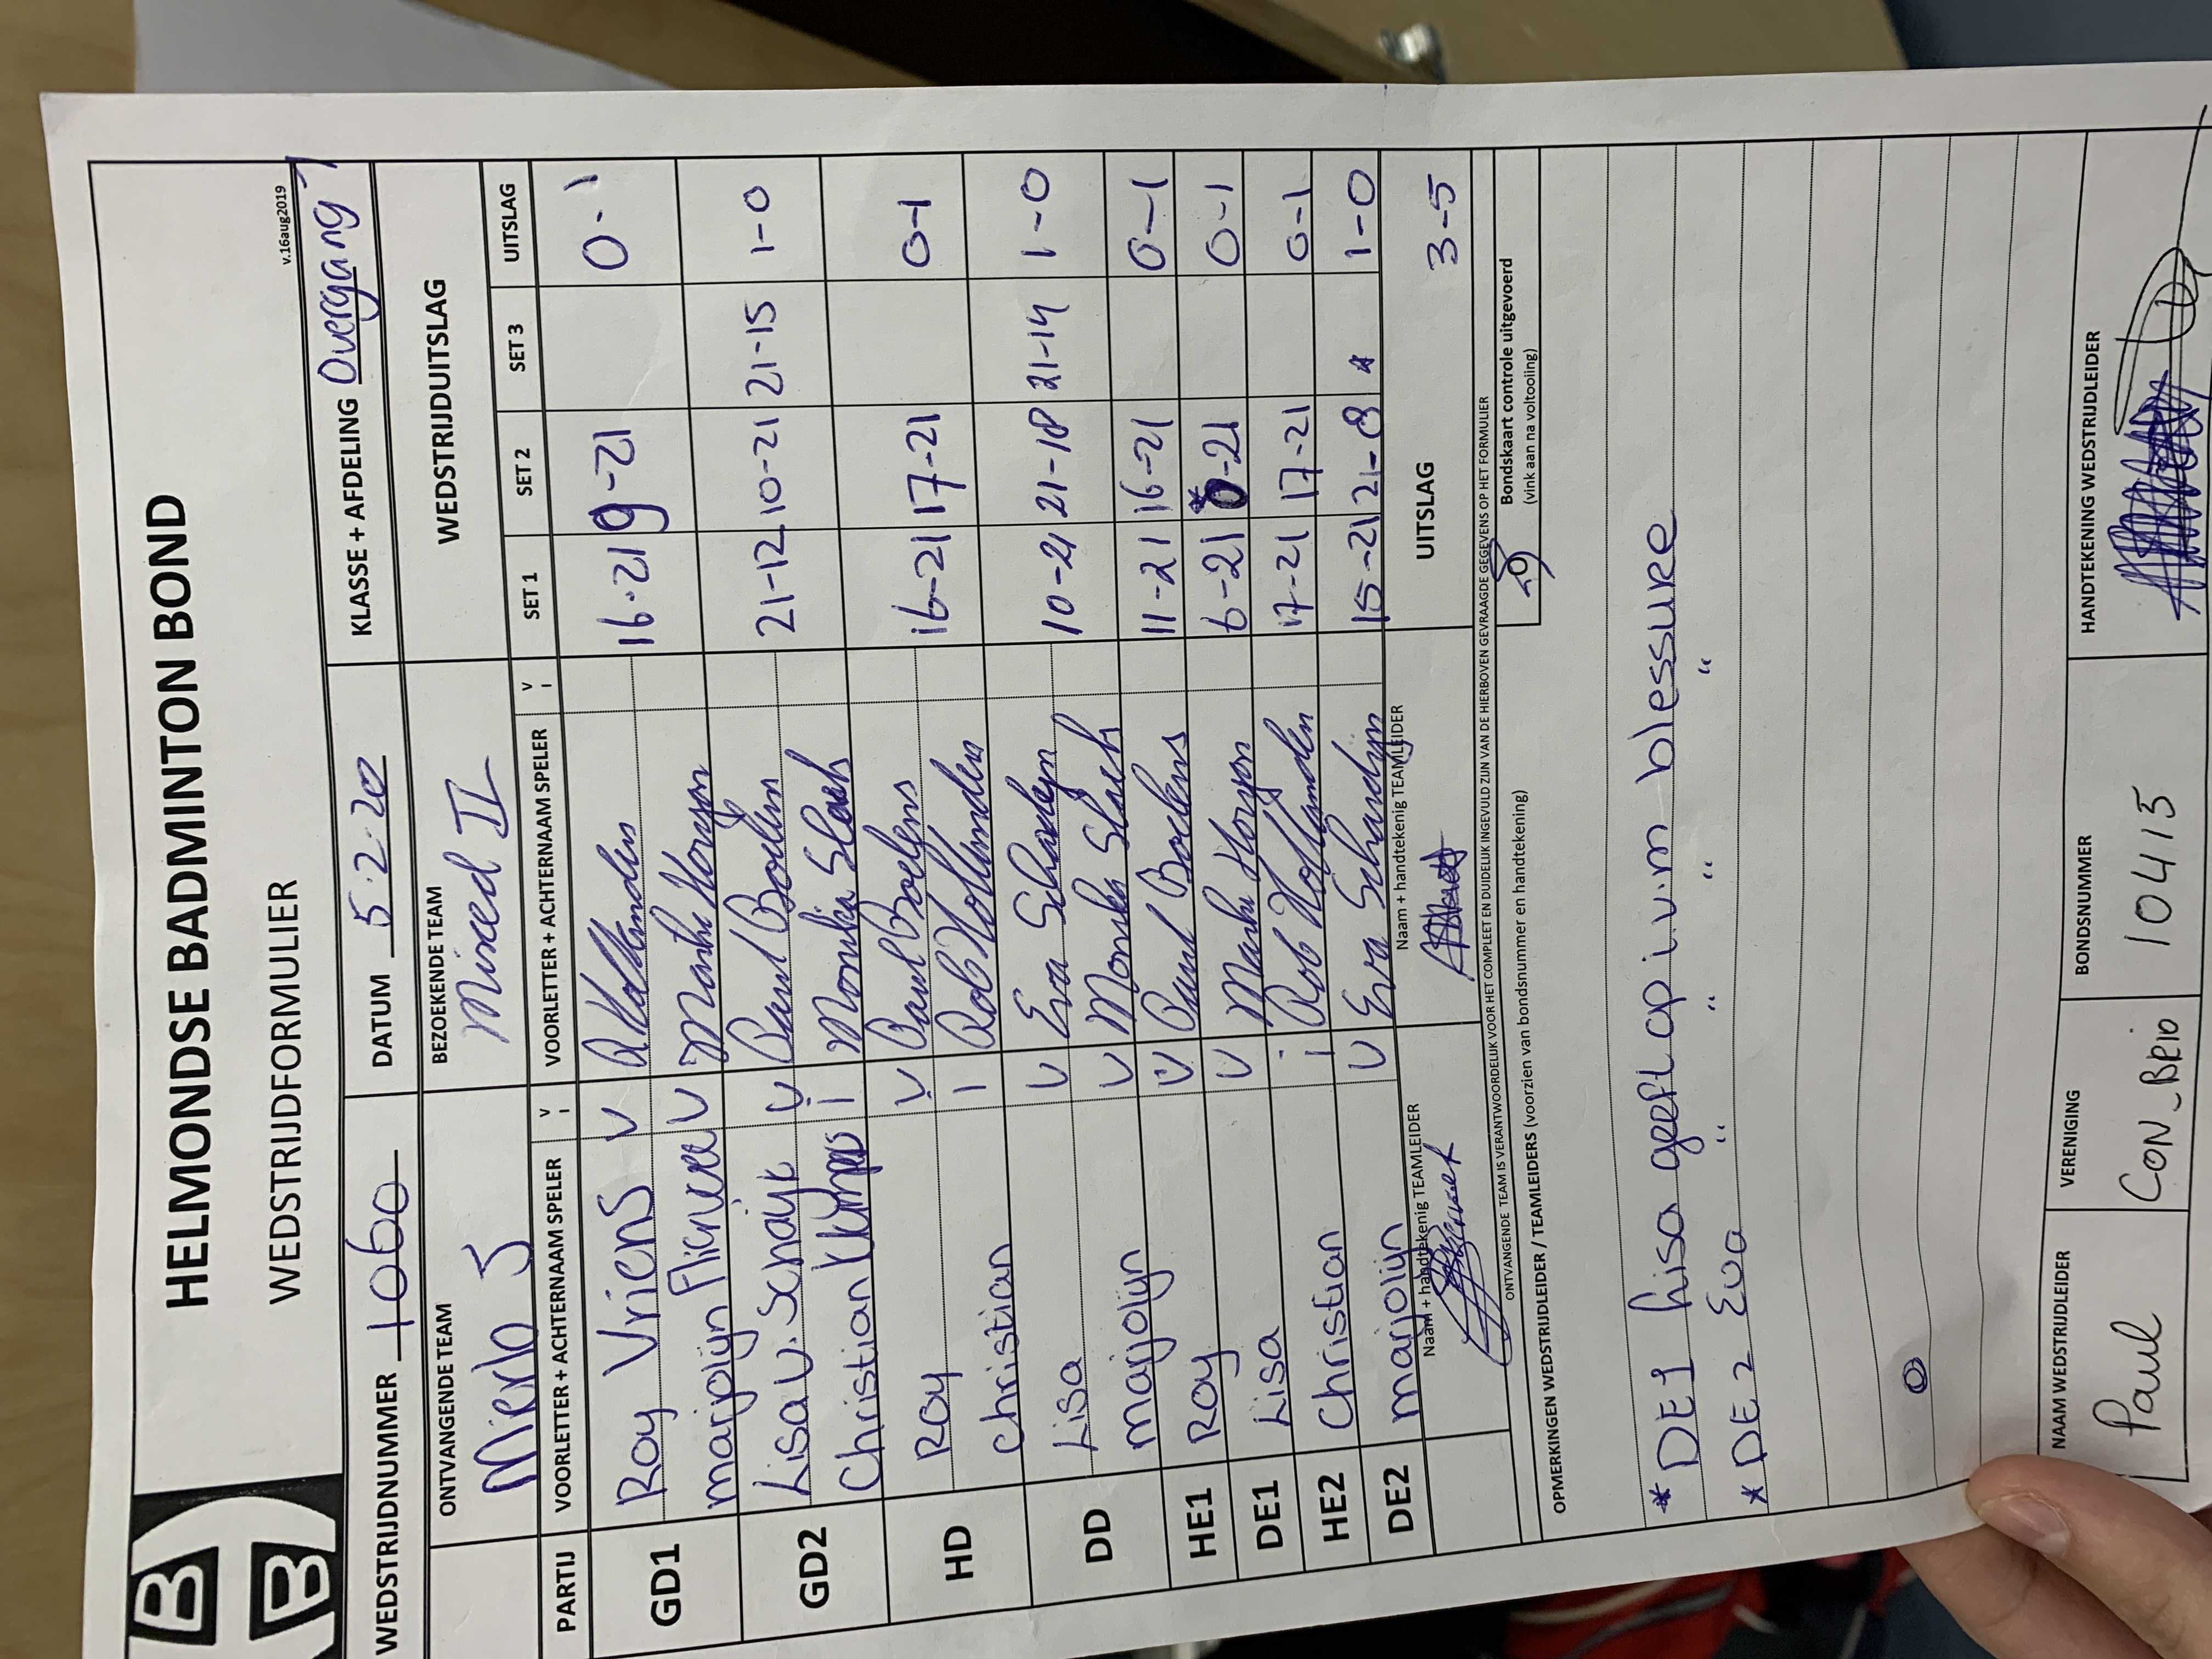 HELMONDSE BADMINTON BOND
WEDSTRIJDFORMULIER
v.16aug2019
WEDSTRIJDNUMMER 1060 DATUM 5·2·20 KLASSE + AFDELING Overgang 1
ONTVANGENDE TEAM BEZOEKENDE TEAM WEDSTRIJDUITSLAG
Mierlo 5 Mixed II
PARTIJ VOORLETTER + ACHTERNAAM SPELER V I VOORLETTER + ACHTERNAAM SPELER V I SET 1 SET 2 SET 3 UITSLAG
GD1 Roy Vriens V R Hollanders 16-21 9-21 0-1
marjolijn V V
GD2 Lisa v. Schaijk V Paul Boelens 21-12 10-21 21-15 1-0
Christian i Monika
HD Roy V Paul Boelens 16-21 17-21 0-1
Christian I Rob Hollanders
DD Lisa V Eva Schardijn 10-21 21-18 21-14 1-0
marjolijn V Monika
HE1 Roy V Paul Boelens 11-21 16-21 0-1
DE1 Lisa V 6-21 * 0-21 0-1
HE2 Christian i Rob Hollanders 17-21 17-21 0-1
DE2 marjolijn V Eva Schardijn 15-21 21-8 * 1-0
Naam + handtekenig TEAMLEIDER Naam + handtekenig TEAMLEIDER UITSLAG 3-5
ONTVANGENDE TEAM IS VERANTWOORDELIJK VOOR HET COMPLEET EN DUIDELIJK INGEVULD ZIJN VAN DE HIERBOVEN GEVRAAGDE GEGEVENS OP HET FORMULIER
Bondskaart controle uitgevoerd
(vink aan na voltooling)
OPMERKINGEN WEDSTRIJDLEIDER / TEAMLEIDERS (voorzien van bondsnummer en handtekening)
* DE1 Lisa geeft op i.v.m blessure
* DE2 Eva " " " "
NAAM WEDSTRIJDLEIDER VERENIGING BONDSNUMMER HANDTEKENING WEDSTRIJDLEIDER
Paul CON_BRIO 10415